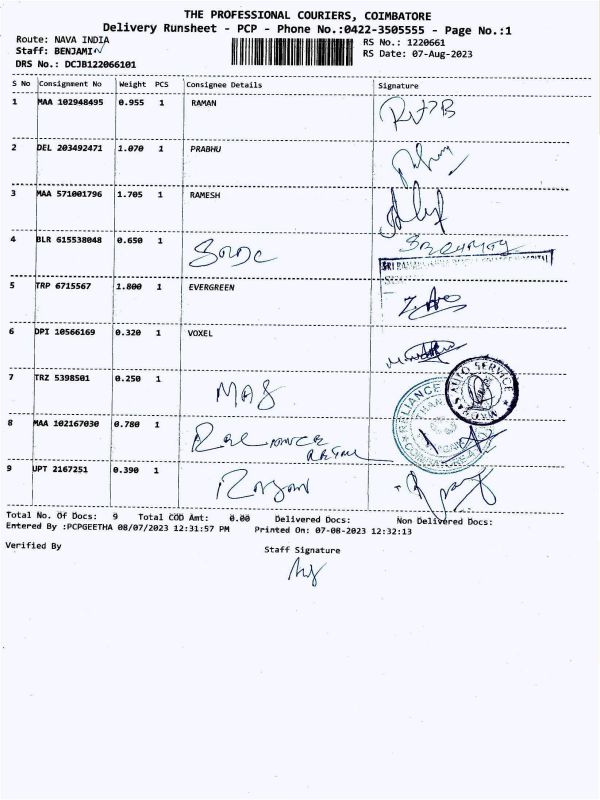 THE PROFESSIONAL COURIERS, COIMBATORE
Delivery Runsheet - PCP - Phone No.:0422-3505555 - Page No.:1
Route: NAVA INDIA
RS No.: 1220661
Staff: BENJAMIN
RS Date: 07-Aug-2023
DRS No.: DCJB122066101
S No Consignment No Weight PCS Consignee Details Signature
1 MAA 102948495 0.955 1 RAMAN
2 DEL 203492471 1.070 1 PRABHU
3 MAA 571001796 1.705 1 RAMESH
4 BLR 615538048 0.650 1 Security
SRI HOSPITAL
5 TRP 6715567 1.800 1 EVERGREEN
6 DPI 10566169 0.320 1 VOXEL
7 TRZ 5398501 0.250 1 MAS
AUTO SERVICE
RELIANCE
8 MAA 102167030 0.780 1 RELIANCE
RETAIL
9 UPT 2167251 0.390 1
Total No. Of Docs: 9 Total COD Amt: 0.00 Delivered Docs: Non Delivered Docs:
Entered By :PCPGEETHA 08/07/2023 12:31:57 PM Printed On: 07-08-2023 12:32:13
Verified By
Staff Signature